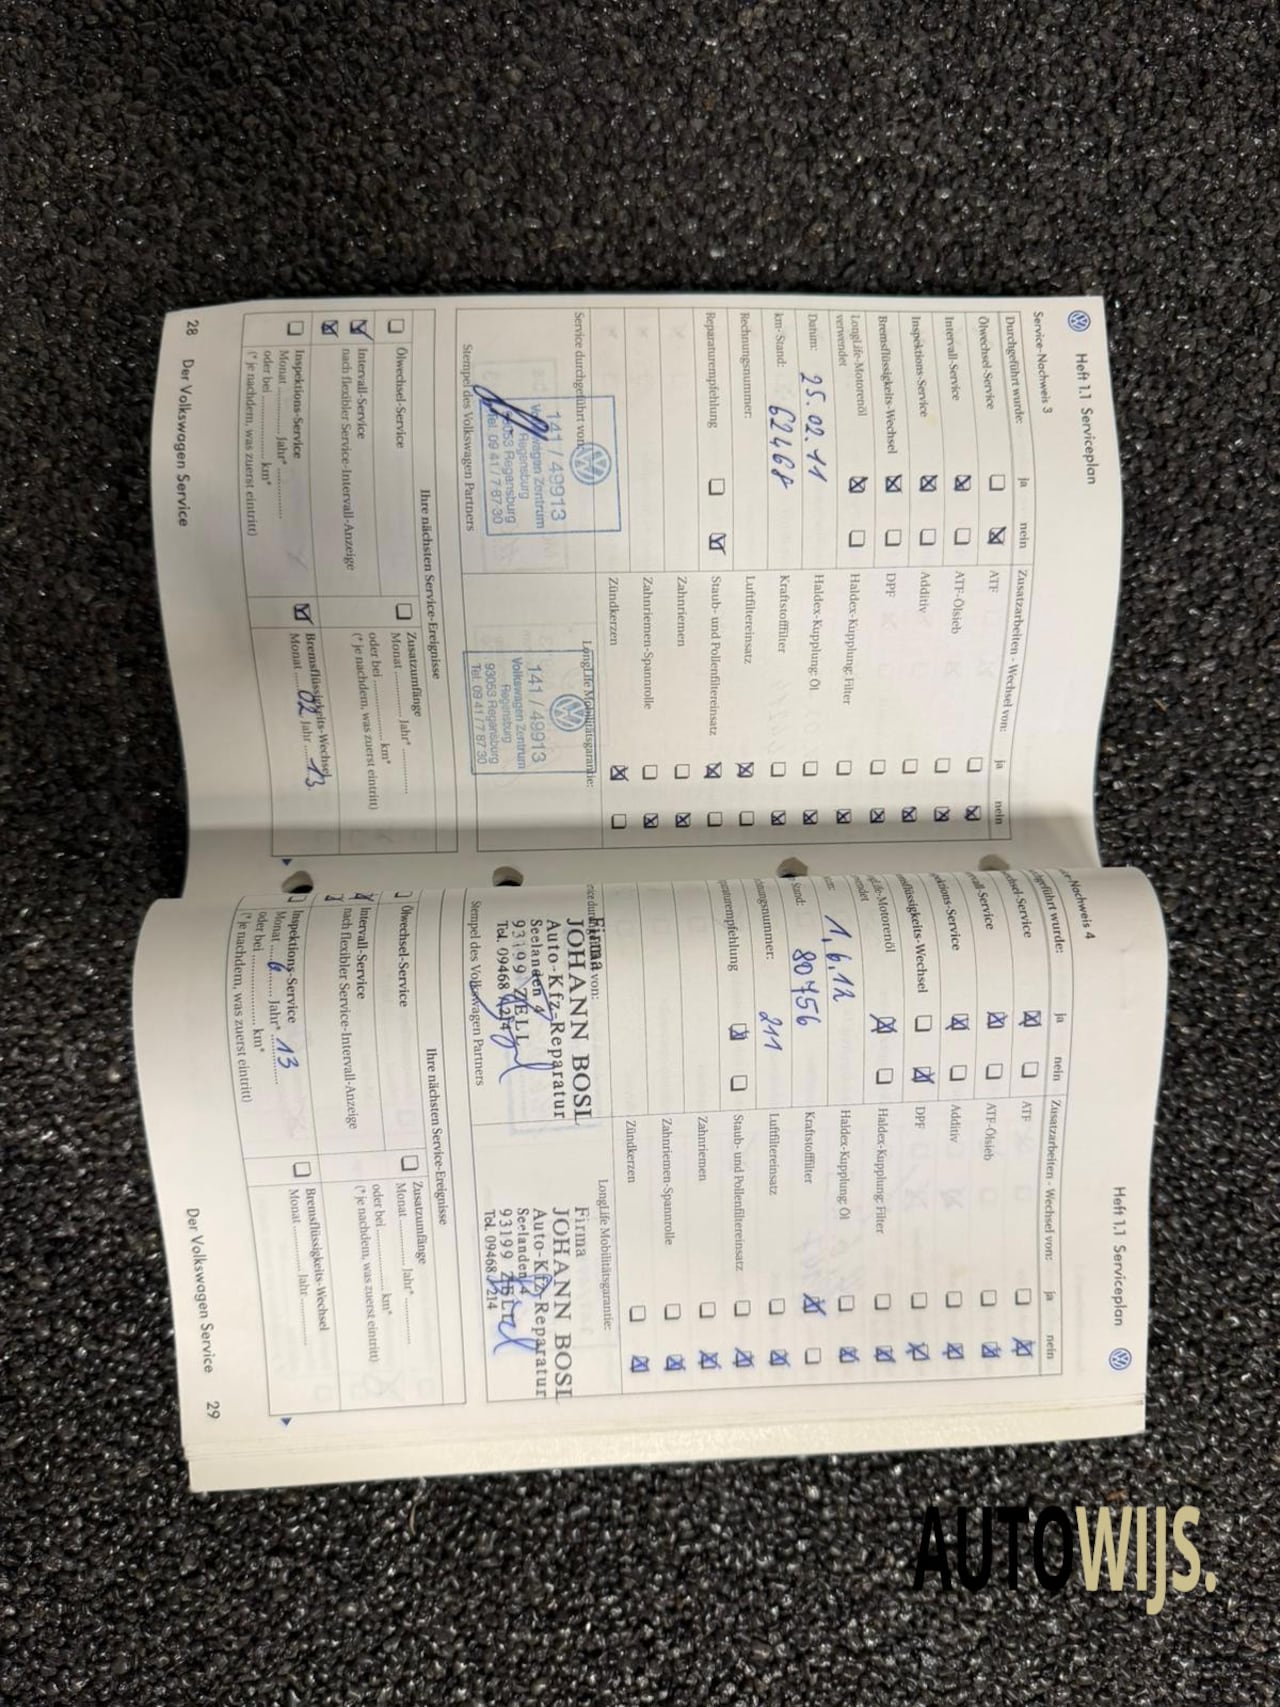 Heft 1.1 Serviceplan
Service-Nachweis 3
Durchgeführt wurde: ja nein
Ölwechsel-Service
Intervall-Service
Inspektions-Service
Bremsflüssigkeits-Wechsel
LongLife-Motorenöl
verwendet
Datum: 25.02.11
km-Stand: 62468
Rechnungsnummer:
Reparaturempfehlung
Zusatzarbeiten - Wechsel von: ja nein
ATF
ATF-Ölsieb
Additiv
DPF
Haldex-Kupplung: Filter
Haldex-Kupplung: Öl
Kraftstofffilter
Luftfiltereinsatz
Staub- und Pollenfiltereinsatz
Zahnriemen
Zahnriemen-Spannrolle
Zündkerzen
Service durchgeführt von:
141 / 49913
Volkswagen Zentrum
Regensburg
93053 Regensburg
Tel. 09 41 / 7 87 30
Stempel des Volkswagen Partners
LongLife Mobilitätsgarantie:
141 / 49913
Volkswagen Zentrum
Regensburg
93053 Regensburg
Tel. 09 41 / 7 87 30
Ihre nächsten Service-Ereignisse
Ölwechsel-Service
Intervall-Service
nach flexibler Service-Intervall-Anzeige
Inspektions-Service
Monat ........ Jahr* ............
oder bei ................ km*
(* je nachdem, was zuerst eintritt)
Zusatzumfänge
Monat ........ Jahr* ............
oder bei ................ km*
(* je nachdem, was zuerst eintritt)
Bremsflüssigkeits-Wechsel
Monat 02 Jahr 13
28 Der Volkswagen Service
Heft 1.1 Serviceplan
Nachweis 4
wurde: ja nein
Service
Service
Service
Wechsel
Motorenöl
1.6.12
Stand: 80756
nummer: 211
Reparaturempfehlung
Zusatzarbeiten - Wechsel von: ja nein
ATF
ATF-Ölsieb
Additiv
DPF
Haldex-Kupplung: Filter
Haldex-Kupplung: Öl
Kraftstofffilter
Luftfiltereinsatz
Staub- und Pollenfiltereinsatz
Zahnriemen
Zahnriemen-Spannrolle
Zündkerzen
von:
Firma
JOHANN BOSL
Auto-Kfz-Reparatur
Seelanden 4
93199 ZELL
Tel. 09468 / 1214
Stempel des Volkswagen Partners
LongLife Mobilitätsgarantie:
Firma
JOHANN BOSL
Auto-Kfz Reparatur
Seelanden 4
93199 ZELL
Tel. 09468 / 1214
Ihre nächsten Service-Ereignisse
Ölwechsel-Service
Intervall-Service
nach flexibler Service-Intervall-Anzeige
Inspektions-Service
Monat 6 Jahr* 13
oder bei ................ km*
(* je nachdem, was zuerst eintritt)
Zusatzumfänge
Monat ........ Jahr* ............
oder bei ................ km*
(* je nachdem, was zuerst eintritt)
Bremsflüssigkeits-Wechsel
Monat .......... Jahr ............
Der Volkswagen Service 29
AUTOWIJS.